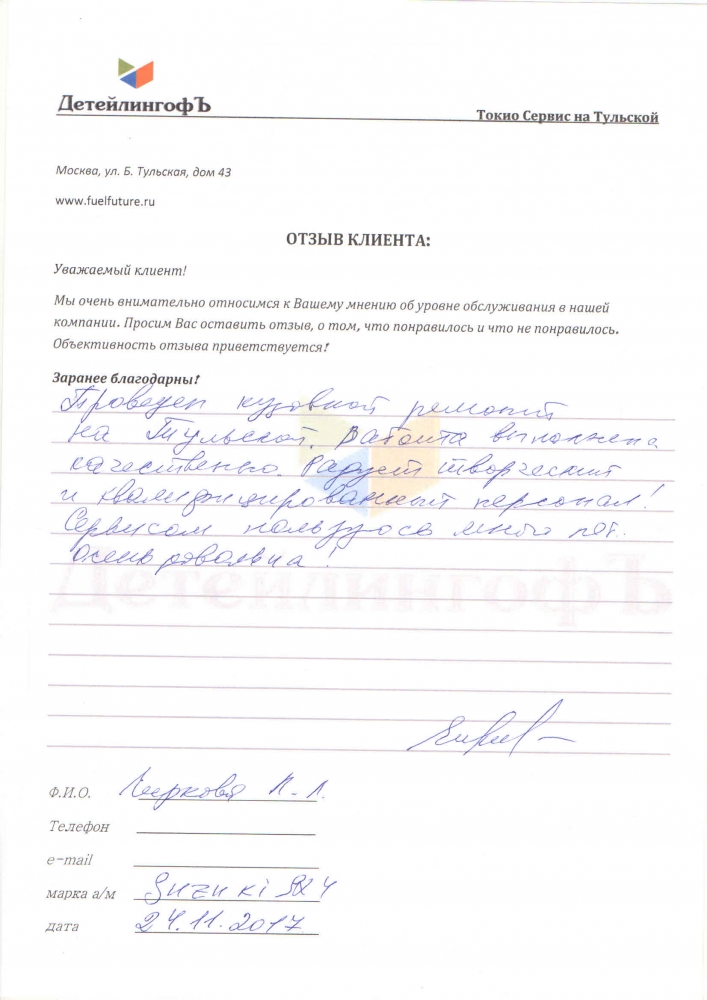 ДетейлингофЪ
Токио Сервис на Тульской
Москва, ул. Б. Тульская, дом 43
www.fuelfuture.ru
ОТЗЫВ КЛИЕНТА:
Уважаемый клиент!
Мы очень внимательно относимся к Вашему мнению об уровне обслуживания в нашей
компании. Просим Вас оставить отзыв, о том, что понравилось и что не понравилось.
Объективность отзыва приветствуется!
Заранее благодарны!
Проведен кузовной ремонт
на Тульской. Работа выполнена
качественно. Радует творческий
и квалифицированный персонал!
Сервисом пользуюсь много лет.
Очень довольна!
ДетейлингофЪ
Ф.И.О. Чиркова Л.
Телефон
e-mail
марка а/м Suzuki SX4
дата 24.11.2017